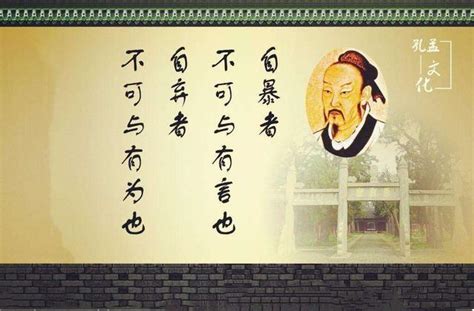 孔孟
文化
自暴者
不可与有言也
自弃者
不可与有为也